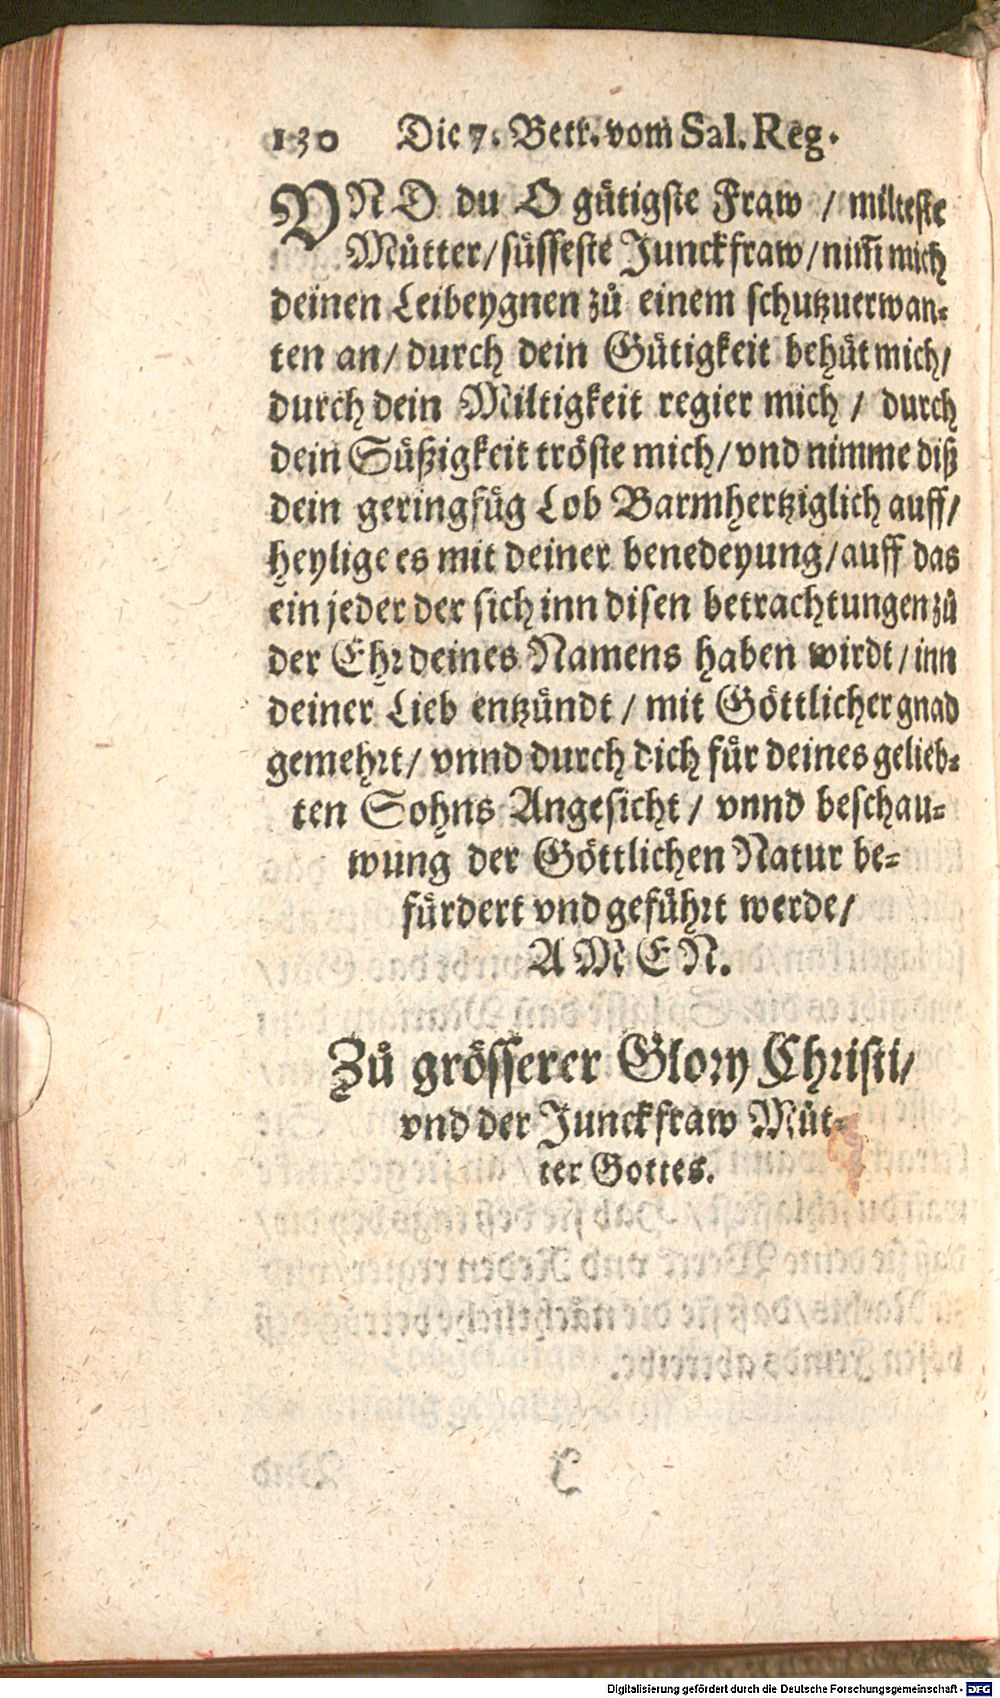 130 Die 7. Betr. vom Sal. Reg.
VND du O gütigste Fraw / milteste
Můtter / süsseste Junckfraw / nim̃ mich
deinen Leibeygnen zů einem schutzuerwan-
ten an / durch dein Gütigkeit behüt mich /
durch dein Miltigkeit regier mich / durch
dein Süßigkeit tröste mich / vnd nimme diß
dein geringfüg Lob Barmhertziglich auff /
heylige es mit deiner benedeyung / auff das
ein jeder der sich inn disen betrachtungen zů
der Ehr deines Namens haben wirdt / inn
deiner Lieb entzündt / mit Göttlicher gnad
gemehrt / vnnd durch dich für deines gelieb-
ten Sohns Angesicht / vnnd beschau-
wung der Göttlichen Natur be-
fürdert vnd geführt werde /
AMEN.
Zů grösserer Glory Christi /
vnd der Junckfraw Můt-
ter Gottes.
Digitalisierung gefördert durch die Deutsche Forschungsgemeinschaft - DFG